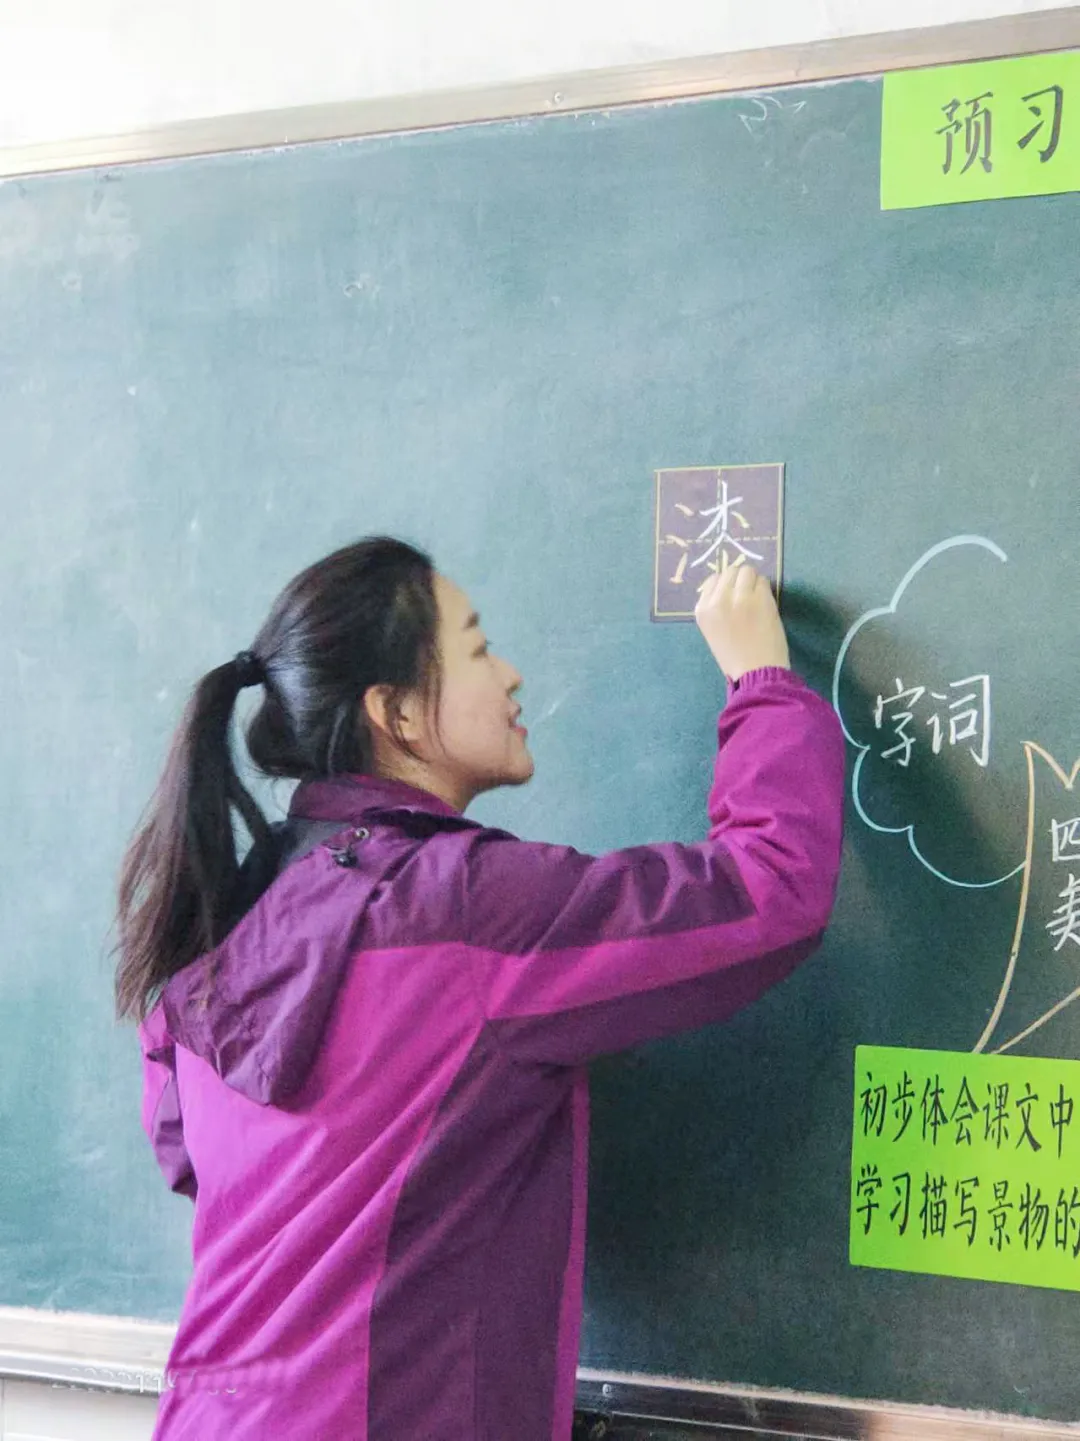 预习
漆
字词
四
美
初步体会课文中
学习描写景物的